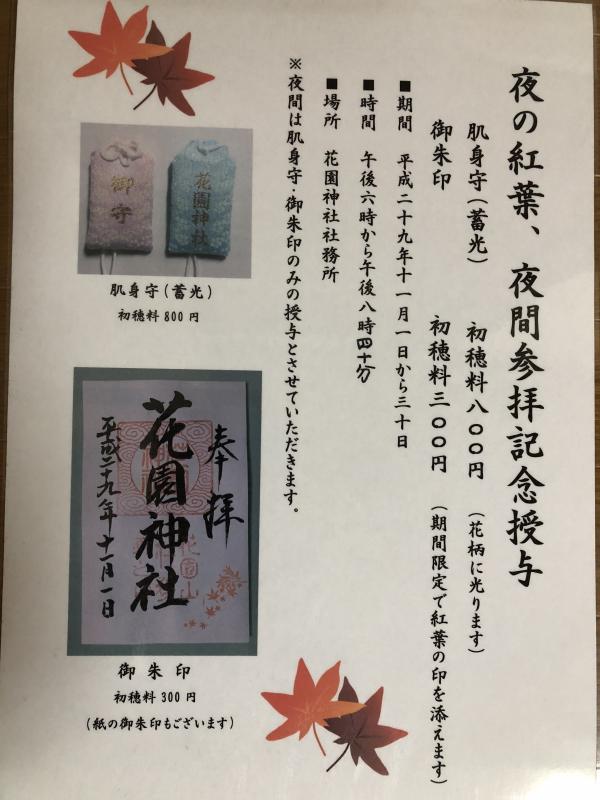 夜の紅葉、夜間参拝記念授与
肌身守(蓄光) 初穂料八〇〇円 (花柄に光ります)
御朱印 初穂料三〇〇円 (期間限定で紅葉の印を添えます)
■期間 平成二十九年十一月一日から三十日
■時間 午後六時から午後八時四十分
■場所 花園神社社務所
※夜間は肌身守・御朱印のみの授与とさせていただきます。
御守
花園神社
肌身守(蓄光)
初穂料800円
奉拝
花園神社
平成二十九年十一月一日
御朱印
初穂料300円
(紙の御朱印もございます)